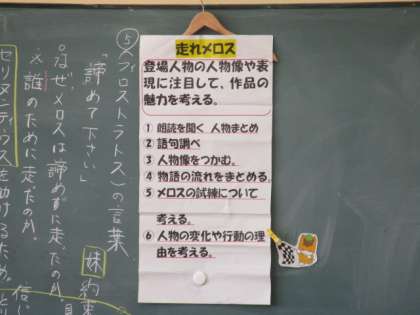 走れメロス
登場人物の人物像や表
現に注目して、作品の
魅力を考える。
① 朗読を聞く 人物まとめ
② 語句調べ
③ 人物像をつかむ。
④ 物語の流れをまとめる。
⑤ メロスの試練について
考える。
⑥ 人物の変化や行動の理
由を考える。
⑤(フィロストラトス)の言葉
「諦めて下さい」
○なぜメロスは諦めずに走ったのか。
※誰のために走ったのか。
セリヌンティウスを助けるため。
妹